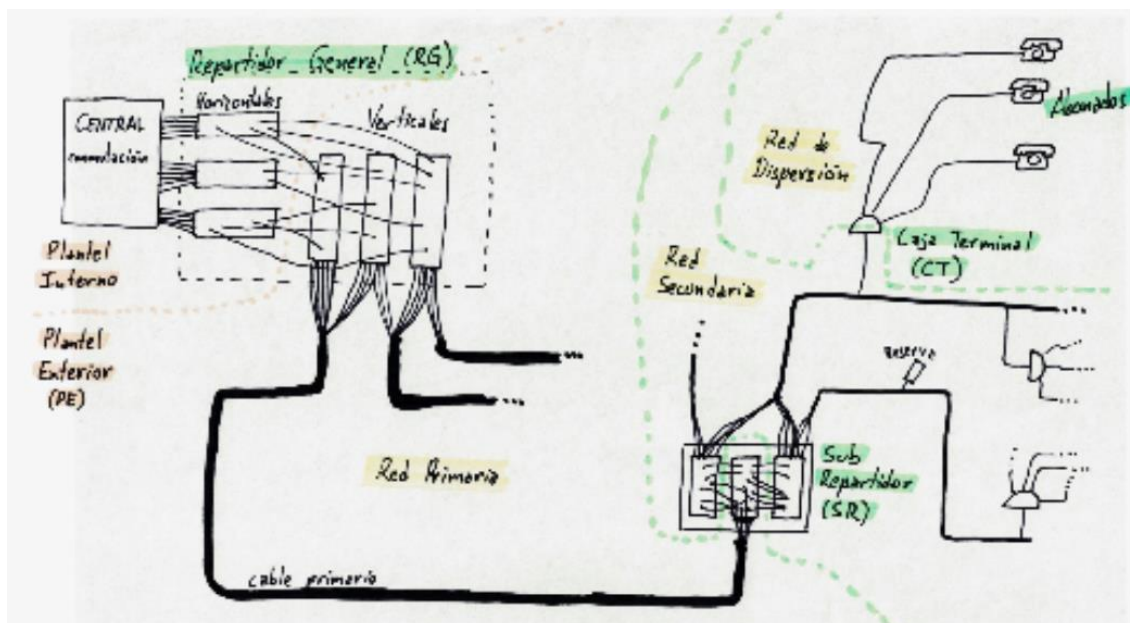 Repartidor General (RG)
Horizontales
Verticales
CENTRAL
conmutación
Plantel
Interno
Plantel
Exterior
(PE)
Red Primaria
cable primario
Red
Secundaria
Red de
Dispersión
Abonados
Caja Terminal
(CT)
Reserva
Sub
Repartidor
(SR)